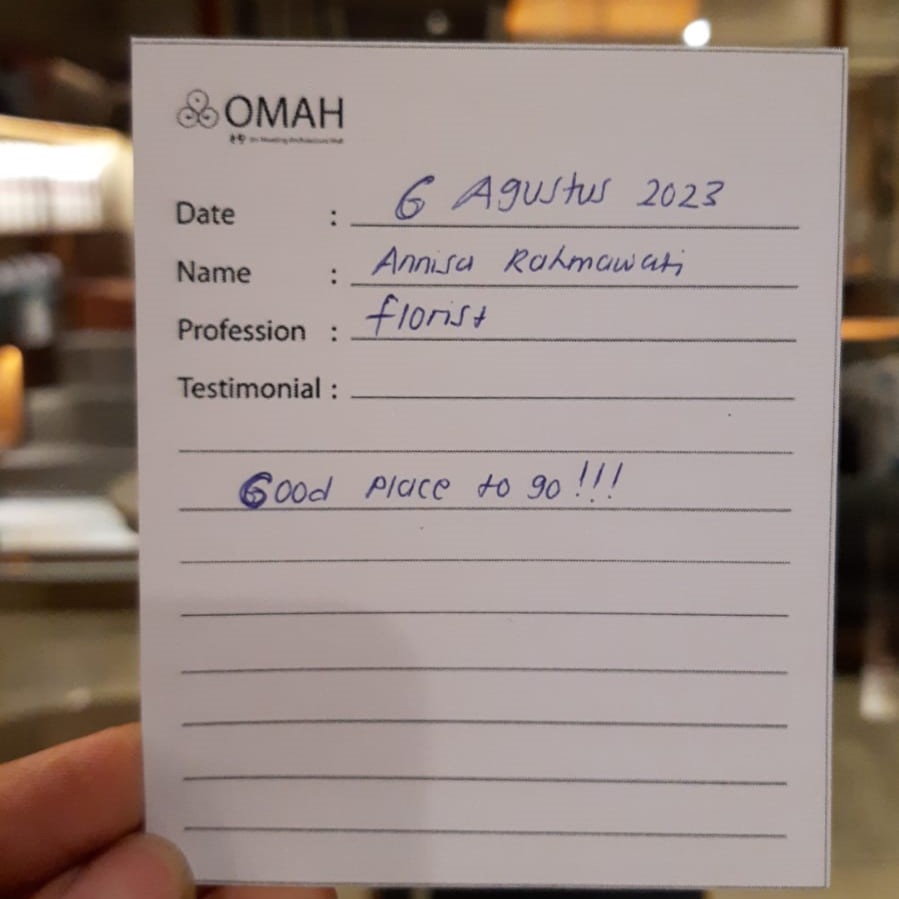 OMAH
Date : 6 Agustus 2023
Name : Annisa Rahmawati
Profession : florist
Testimonial :
Good place to go!!!